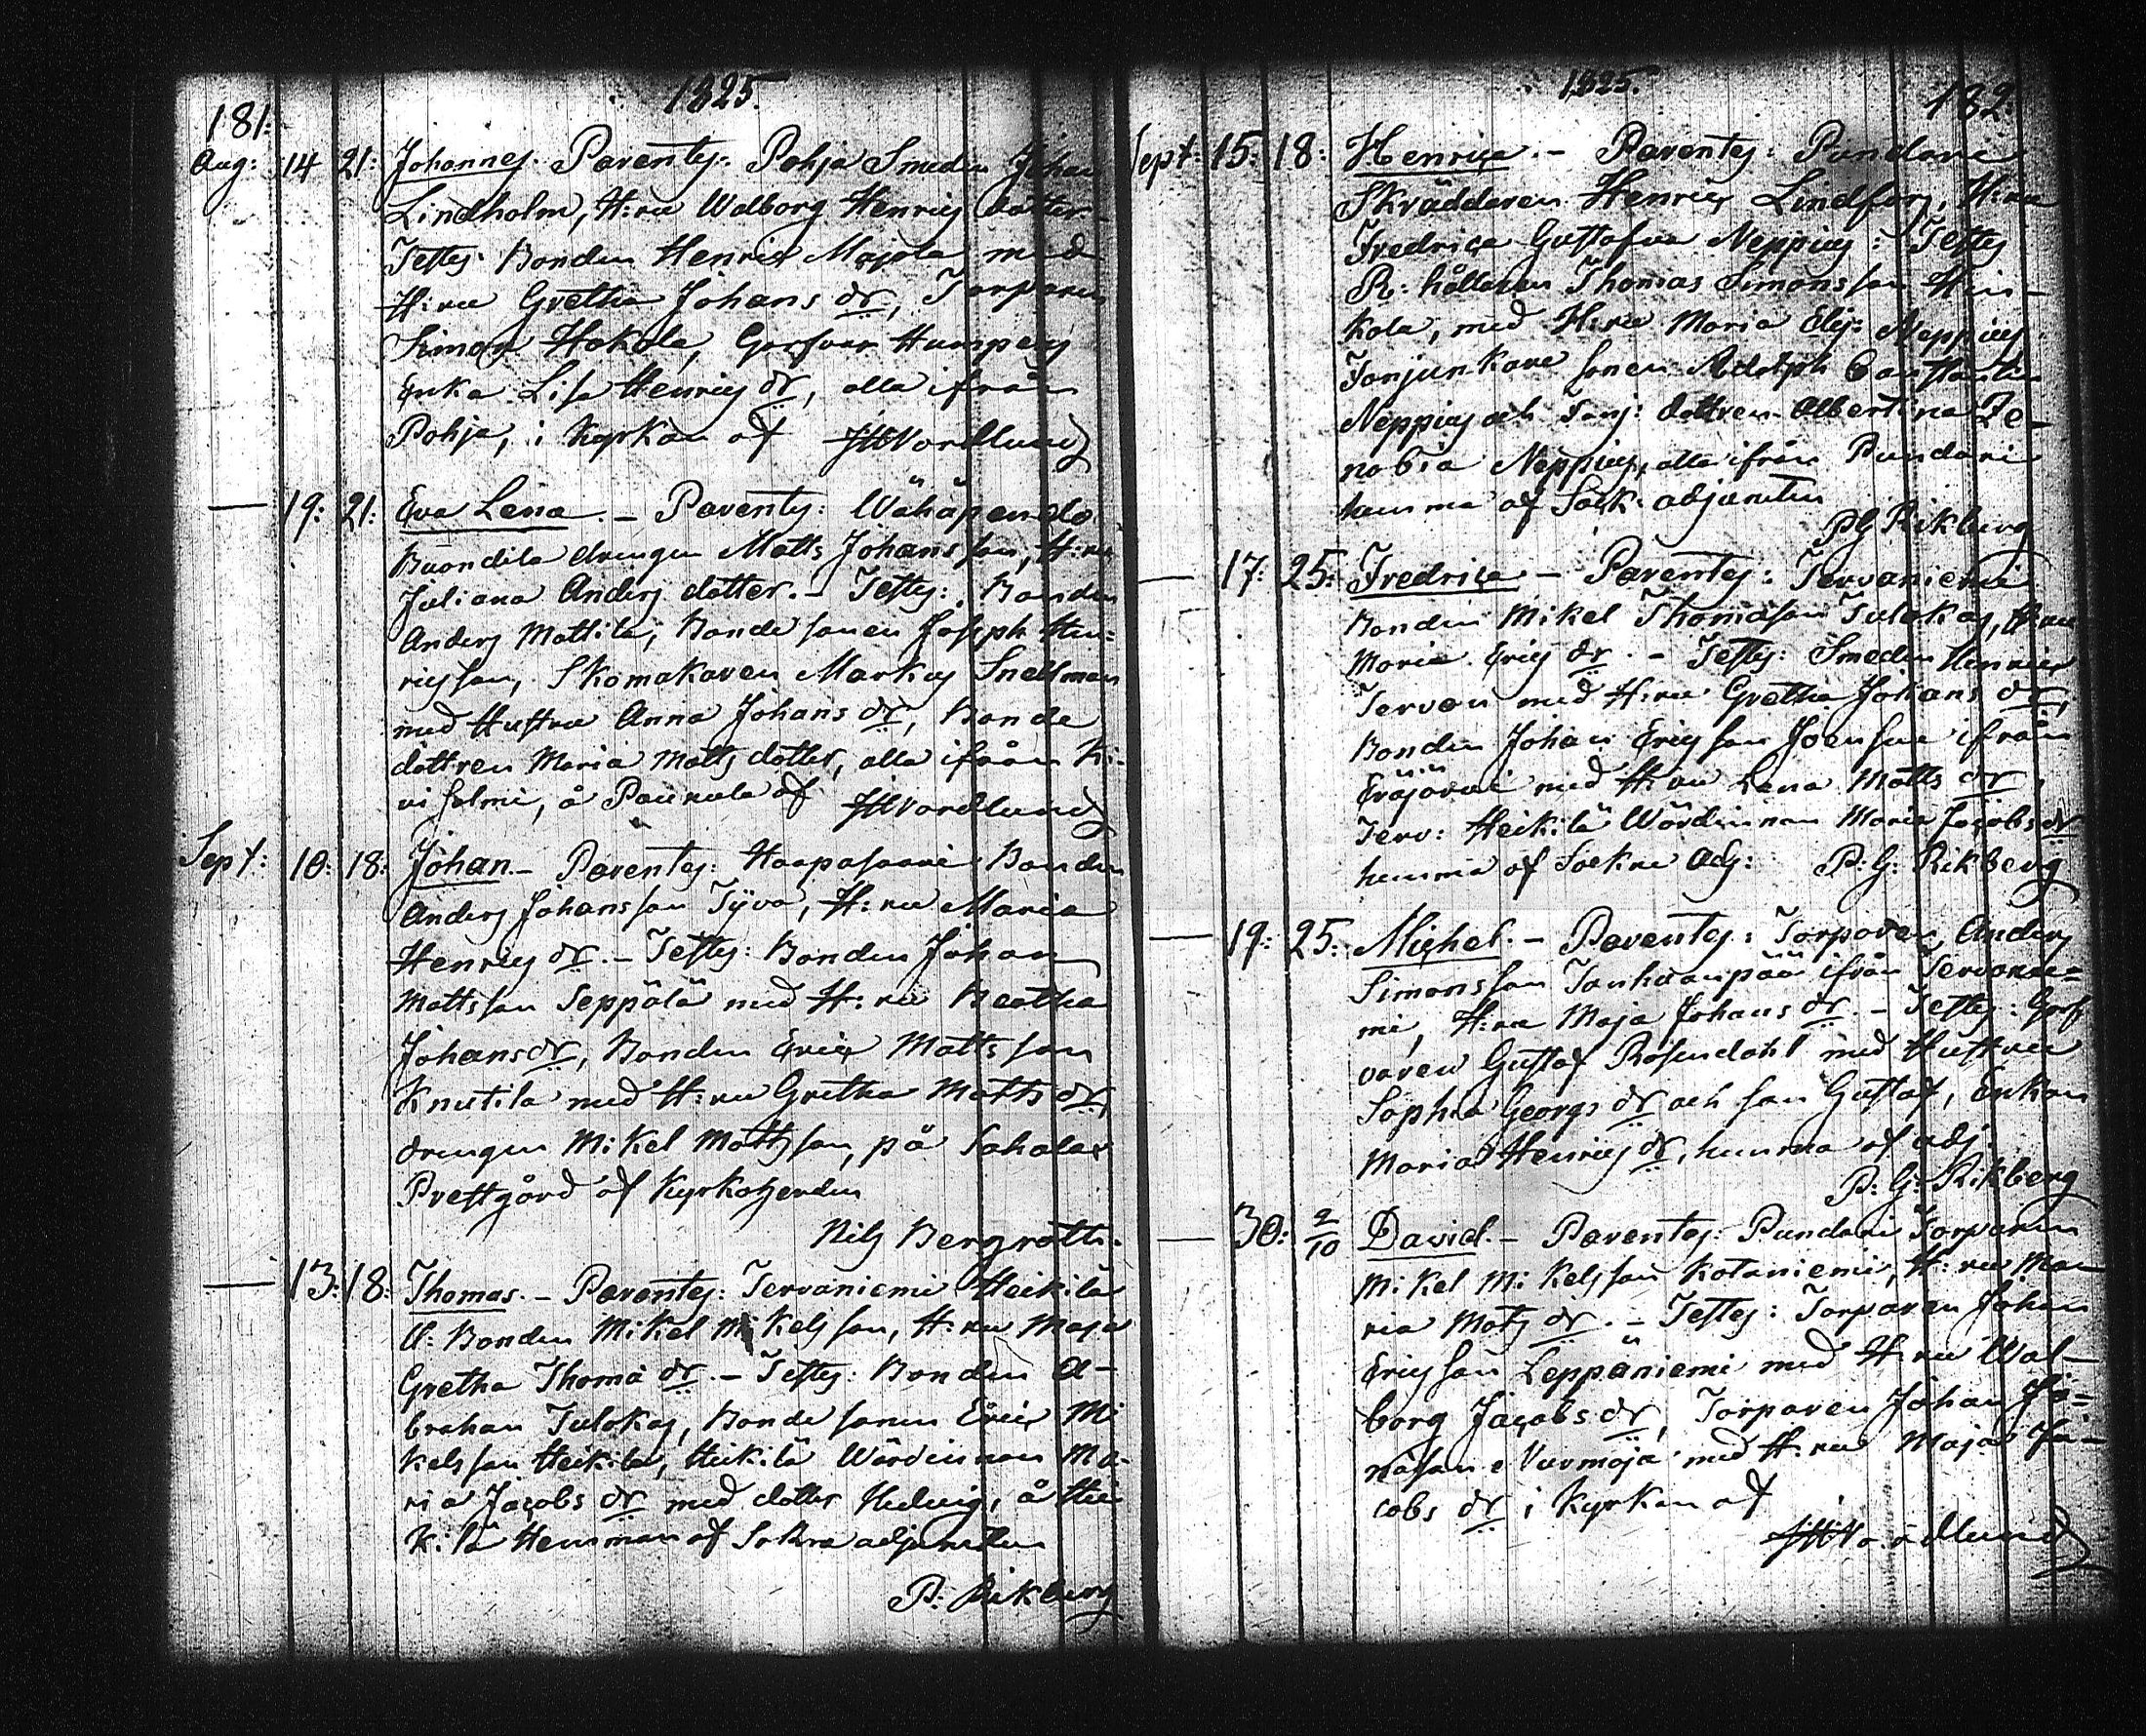 181.
1825.
Aug: 14 21: Johannes. Parentes: Pohja Smeden Johan
Lindholm, H:ru Walborg Henrics dotter
Testes: Bonden Henric Majala med
H:ru Gretha Johans dr, Torparen
Simon Hakola, Gerfvar
Enka Lisa Henrics dr, alla ifrån
Pohja, i Kyrkan af JHNordlund
— 19: 21: Eva Lena. – Parentes: Wähäpendo
drengen Matts Johansson, H:ru
Juliana Anders dotter. – Testes: Bonden
Anders Mattila, Bonde sonen Joseph Hen=
ricsson, Skomakaren Markus Snellman
med Hustru Anna Johans dr, Bonde
dottren Maria Matts dotter, alla ifrån Ki-
visalmi, å Paunula af JHNordlund
Sept: 10: 18: Johan. – Parentes: Haapasaari Bonden
Anders Johansson Tyva, H:ru Maria
Henrics dr. – Testes: Bonden Johan
Mattsson Seppälä med H:ru Beatha
Johansdr, Bonden Eric Mattsson
Knutila med H:ru Gretha Matts dr,
drengen Mikel Mattsson, på Sahalax
Prestgård af Kyrkoherden
Nils Bergroth.
— 13: 18: Thomas. – Parentes: Tervaniemi Heikilä
U: Bonden Mikel Mikelsson, H:ru Maja
Gretha Thoma dr. – Testes: Bonden A-
braham Tulokas, Bonde sonen Eric Mi
kelsson Heikilä, Heikilä Wärdinnan Ma-
ria Jacobs dr med dotter Hedvig, å Hei
kilä Hemman af Sokne adjuncten
P. Rikberg
1825.
182.
Sept: 15: 18: Henrica. – Parentes: Pundari
Skräddaren Henric Lindfors, H:ru
Fredrica Gustafva Neppius: Testes
R: hållaren Thomas Simonsson Hin-
kola, med H:ru Maria Elis: Neppius
Fanjunkare sonen Adolph Constantin
Neppius och Fanj: dottren Albertina Ze-
nobia Neppius, alla ifrån Pundari
hemma af Sock: adjuncten
PG Rikberg
— 17: 25: Fredrica – Parentes: Tervaniemi
Bonden Mikel Thomasson Tulokas, H:ru
Maria Erics dr. – Testes: Smeden Henric
Tervon med H:ru Gretha Johans dr,
Bonden Johan Ericsson Joensuu ifrån
Eräjärvi med H:ru Lena Matts dr,
Terv: Heikilä Wärdinnan Maria Jacobs dr
hemma af Sockne Adj: P: G: Rikberg
— 19: 25: Michel. – Parentes: Torparen Anders
Simonsson Tanhuanpää ifrån Tervanie=
mi, H:ru Maja Johans dr. – Testes: Gerf
varen Gustaf Rosendahl med Hustru
Sophia Georgs dr och son Gustaf, Enkan
Maria Henrics dr, hemma af adj.
P: G: Rikberg
— 30: 2/10 David. – Parentes: Pundari Torparen
Mikel Mikelsson Kotaniemi, H:ru Ma
ria Mats dr. – Testes: Torparen Johan
Ericsson Leppäniemi med H:ru Wal-
borg Jacobs dr, Torparen Johan Jo=
nasson Vuormaja med H:ru Maja Ja-
cobs dr i Kyrkan af
JHNordlund